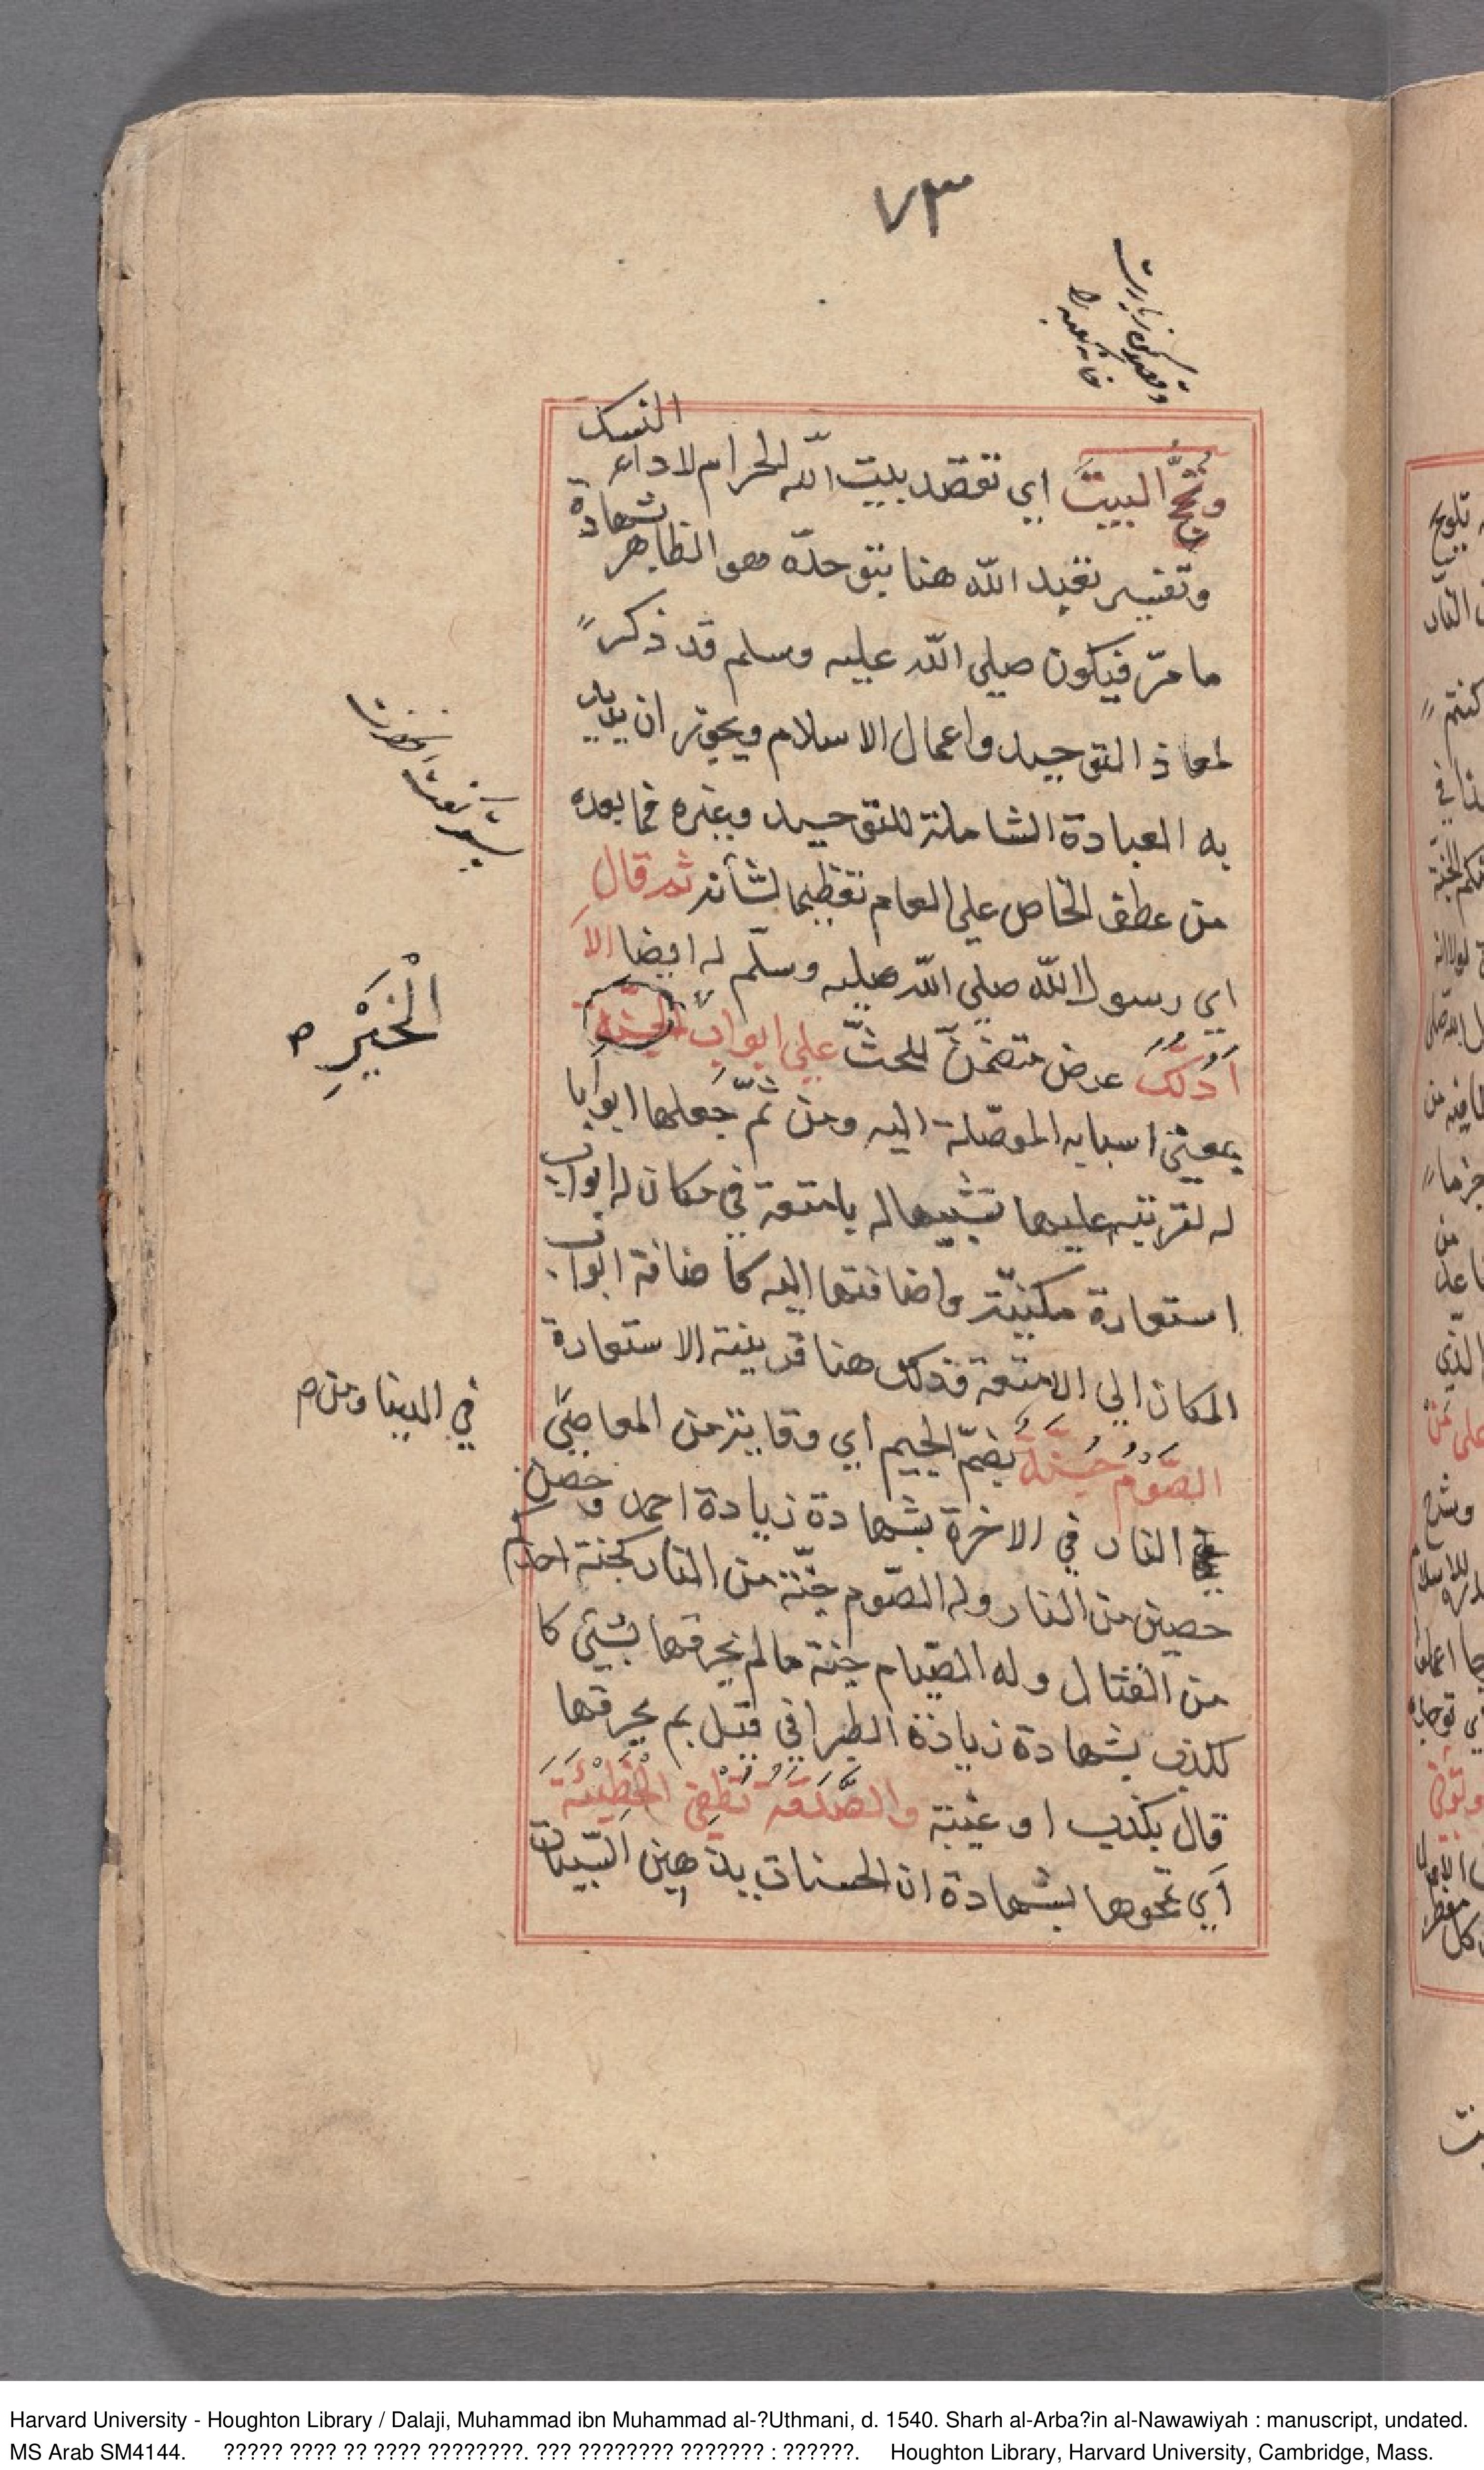 ٧٣
النسك
وتحجّ البيت اي تقصد بيت الله الحرام لاداء
وتفسير تعبد الله هنا بتوحده وهو الظاهر بشهادة
ما مرّ فيكون صلي الله عليه وسلم قد ذكر
لمعاذ التوحيد واعمال الاسلام ويجوز ان يراد
به العبادة الشاملة للتوحيد وغيره فما بعده
من عطف الخاص علي العام تعظيما لشأنه ثم قال
اي رسول الله صلي الله عليه وسلّم له ايضا الا
ادلّك عرض متضمن للحثّ علي ابواب الجنّة
الْخَيْرِ ص
يعني اسبابه الموصّلة اليه ومن ثمّ جعلها ابوابا
له لترتبه عليها تشبيها له بامتعة في مكان له ابواب
استعارة مكنيّة واضافتها اليه كاضافة ابواب
المكان الي الامتعة فذلك هنا قرينة الاستعارة
الصَّوم جنّة بضمّ الجيم اي وقاية من المعاصي
في الدينا ومن ص
النار في الاخرة بشهادة زيادة احمد وحصن
حصين من النار وله الصّوم جنّة من النار كجنة احدكم
من القتال وله الصّيام جنة ما لم يخرقها بشيئ كا
لكذب بشهادة زيادة الطبراني قيل بم يخرقها
قال بكذب او غيبة والصَّدَقَة تُطْفِئ الْخَطِيْئَة
اي تمحوها بشهادة ان الحسنات يذهبن السّيئات
Harvard University - Houghton Library / Dalaji, Muhammad ibn Muhammad al-?Uthmani, d. 1540. Sharh al-Arba?in al-Nawawiyah : manuscript, undated.
MS Arab SM4144. ????? ???? ?? ???? ????????. ??? ???????? ??????? : ??????. Houghton Library, Harvard University, Cambridge, Mass.